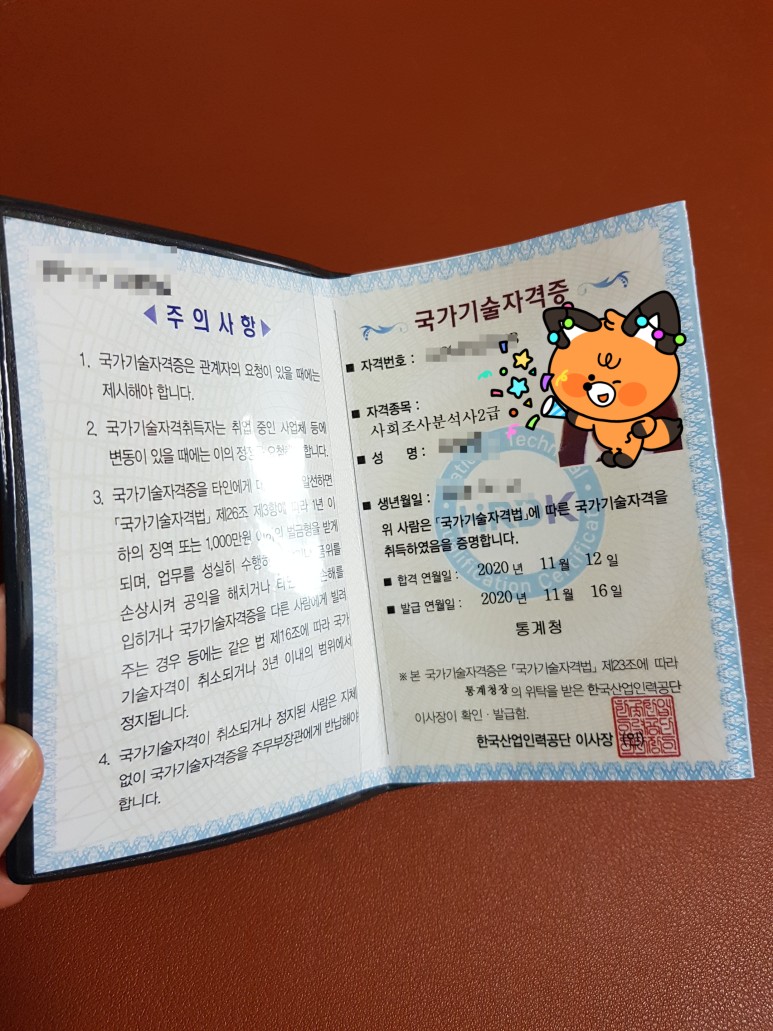 주의사항
1. 국가기술자격증은 관계자의 요청이 있을 때에는
제시해야 합니다.
2. 국가기술자격취득자는 취업 중인 사업체 등에
변동이 있을 때에는 이의 정정을 합니다.
3. 국가기술자격증을 타인에게 알선하면
「국가기술자격법」 제26조 제3항에 따라 1년 이
하의 징역 또는 1,000만원 벌금형을 받게
되며, 업무를 성실히 수행하 품위를
손상시켜 공익을 해치거나 손해를
입히거나 국가기술자격증을 다른 사람에게 빌려
주는 경우 등에는 같은 법 제16조에 따라 국가
기술자격이 취소되거나 3년 이내의 범위에서
정지됩니다.
4. 국가기술자격이 취소되거나 정지된 사람은 지체
없이 국가기술자격증을 주무부장관에게 반납해야
합니다.
국가기술자격증
■ 자격번호 :
■ 자격종목 :
사회조사분석사2급
■ 성 명 :
■ 생년월일 :
위 사람은 「국가기술자격법」에 따른 국가기술자격을
취득하였음을 증명합니다.
■ 합격 연월일 : 2020 년 11 월 12 일
■ 발급 연월일 : 2020 년 11 월 16 일
통계청
※ 본 국가기술자격증은 「국가기술자격법」 제23조에 따라
통계청장의 위탁을 받은 한국산업인력공단
이사장이 확인·발급함.
한국산업인력공단 이사장 (인)